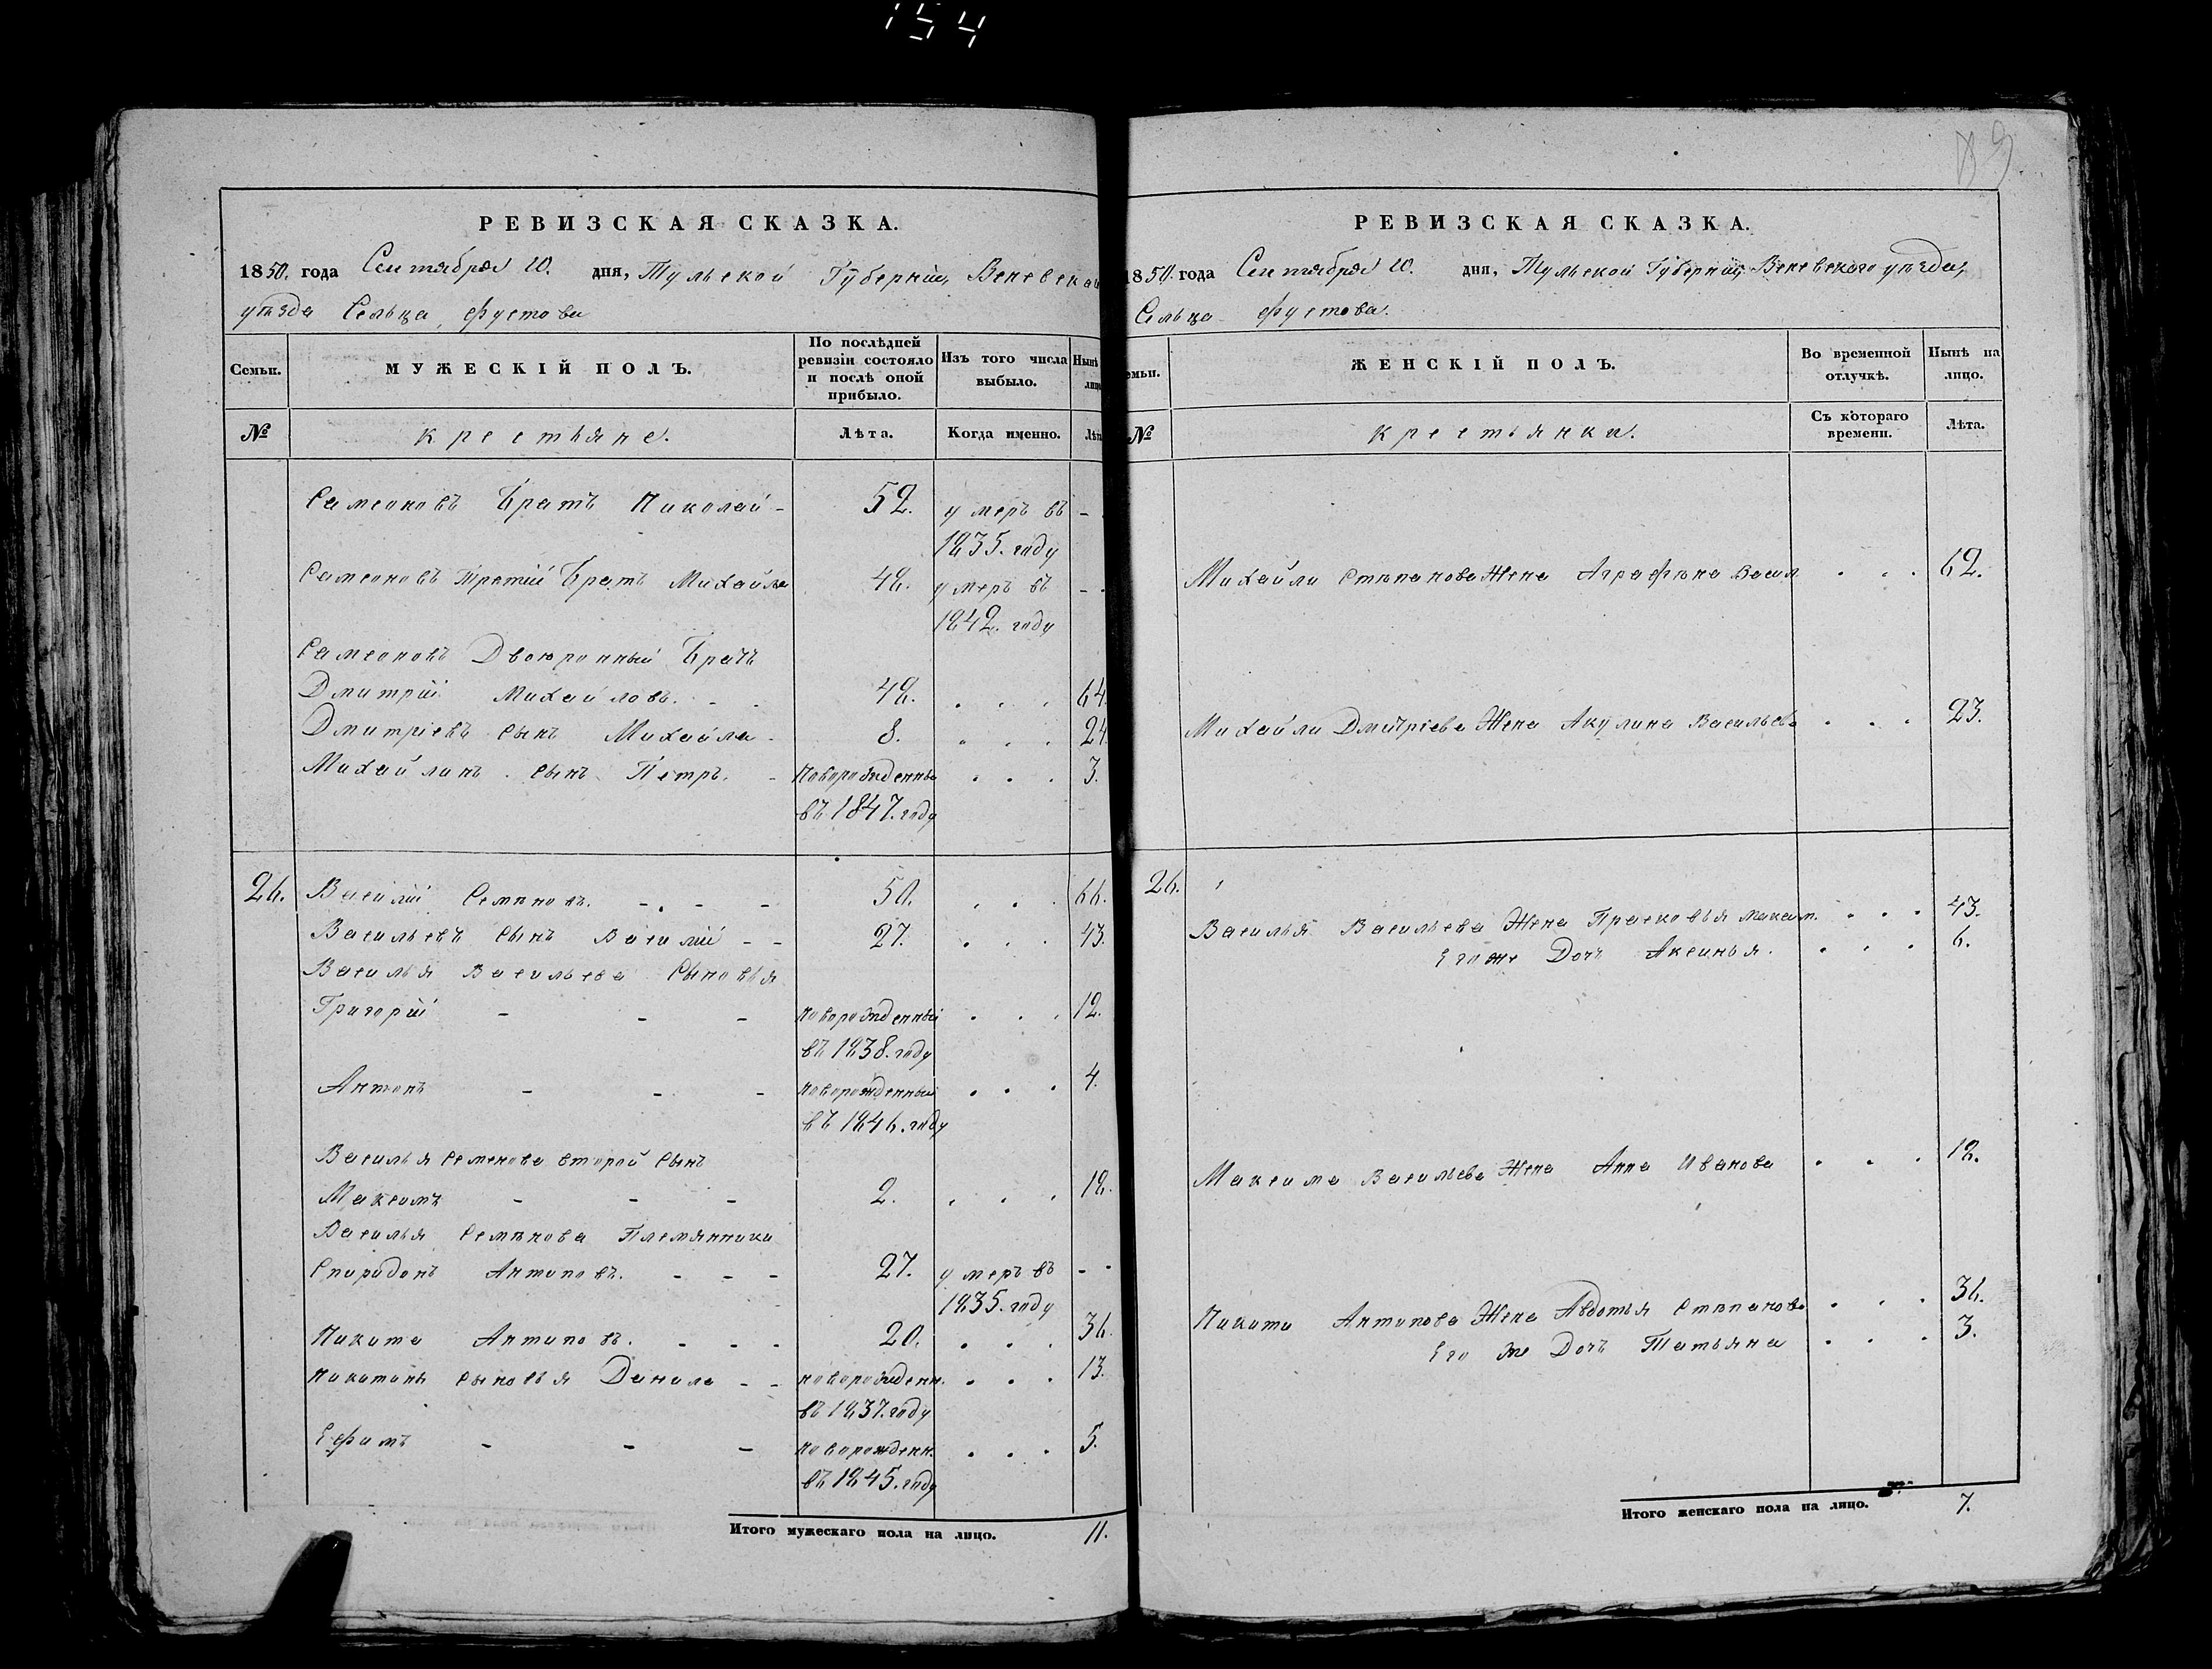 154
РЕВИЗСКАЯ СКАЗКА.
1850. года Сентября 10. дня, Тульской Губерніи, Веневскаго
уѣзда Сельца Фустова
Семьи. МУЖЕСКІЙ ПОЛЪ. По послѣдней ревизіи состояло и послѣ оной прибыло. Изъ того числа выбыло. Нынѣ на лицо.
№ Крестьяне. Лѣта. Когда именно. Лѣта
Самсоновъ Братъ Николай - 52. умеръ въ -
1835. году
Самсоновъ Третій Братъ Михайла 48. умеръ въ - -
1842. году
Самсоновъ Двоюронный Братъ
Дмитрій Михайловъ. - - 48. . . . 64.
Дмитріевъ сынъ Михайла - 8. . . . 24.
Михайлинъ сынъ Петръ. - новорожденны . . . 3.
въ 1847. году
26. Василій Семеновъ. - - - 50. . . . 66.
Васильевъ сынъ Василій - - 27. . . . 43.
Василья Васильева Сыновья
Григорій - - - новорожденный . . . 12.
въ 1838. году
Антонъ - - - новорожденный . . . 4.
въ 1846. году
Василья Семенова второй сынъ
Максимъ - - - 2. . . . 18.
Василья Семенова Племянники
Спиридонъ Антиповъ. - - - 27. умеръ въ - -
1835. году
Никита Антиповъ. - - - 20. . . . 36.
Никитины сыновья Данила - - новорожден. . . . 13.
въ 1837. году
Ефимъ - - - новорожденн. . . . 5.
въ 1845. году
Итого мужескаго пола на лицо. 11.
РЕВИЗСКАЯ СКАЗКА.
1850. года Сентября 10. дня, Тульской Губерніи, Веневскаго уѣзда,
Сельца Фустова.
емьи. ЖЕНСКІЙ ПОЛЪ. Во временной отлучкѣ. Нынѣ на лицо.
№ Крестьянки. Съ котораго времени. Лѣта.
Михайлы Степанова Жена Аграфена Васил . . . 62.
Михайлы Дмитріева Жена Акулина Васильева . . . 23.
26.
Василья Васильева Жена Прасковья Максим. . . . 43.
Его же Дочь Аксинья. . . . 6.
Максима Васильева Жена Анна Иванова . . . 18.
Никиты Антипова Жена Авдотья Степанова . . . 36.
Его же Дочь Татьяна . . . 3.
Итого женскаго пола на лицо. 7.